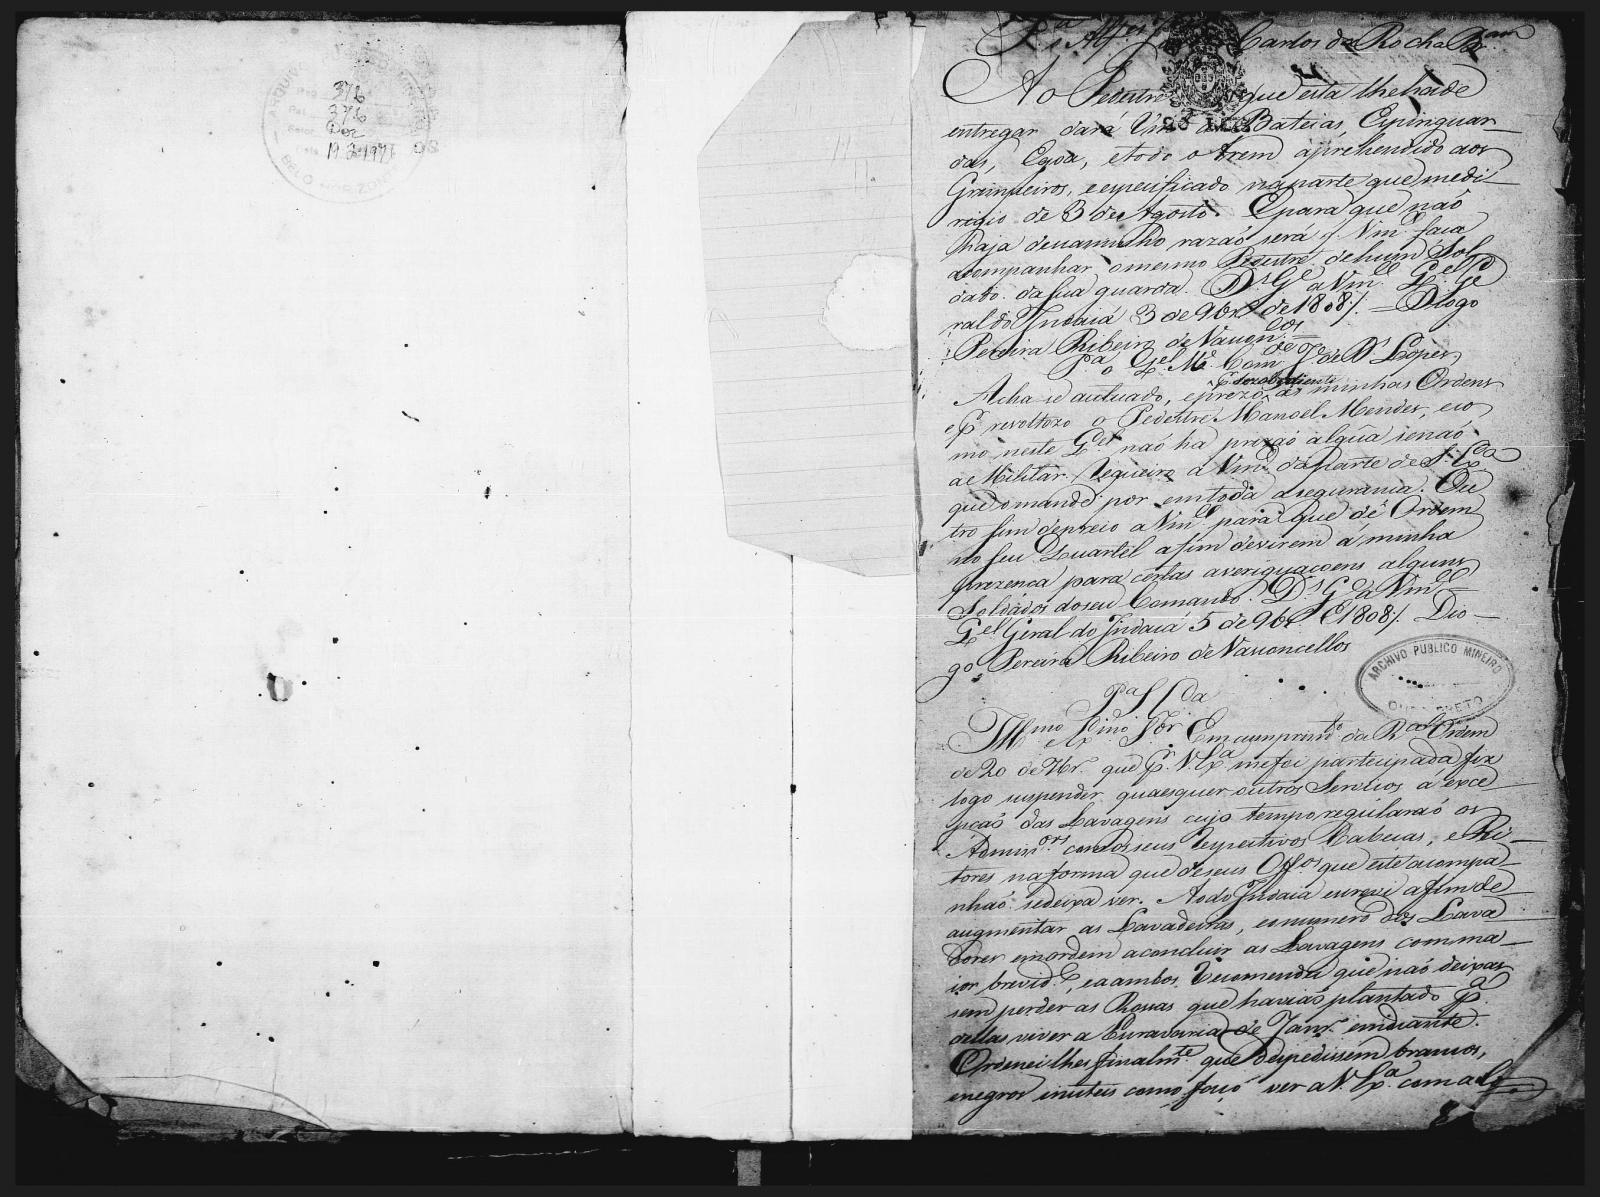 ARQUIVO
376
376
Doc
19 2 1971
BELO HORIZONTE
P.ª Alf.es Carlos da Rocha
Ao Pedestre que esta lhe hade
entregar dará Vm.ce as Bateias, Espinguar-
das, Egoa, e todo o trem aprehendido aos
Grimpeiros, e especificado na parte que me di-
rigio de 3 de Agosto. E para que naõ
haja descaminho razaõ será q. Vm.ce faça
acompanhar o mesmo Pedestre de hum Sol-
dado da sua guarda. D.s G.e a Vm.ce Q.el Ge
ral do Indaiá 3 de 9br.º de 1808 /. = Diogo
Pereira Ribeiro de Vascon.cos
P.ª o Q.el M.e Com.de J.e de D.s Lopes
Acha-se autuado, e prezo, p.r dezobediente ás minhas Ordens
e p.r revoltozo o Pedestre Manoel Mendes, e co
mo neste Q.el naõ ha prizaõ algũa senaõ
a Militar. Requeiro a Vm.ce da parte de S. A. R.
que o mande por em toda a segurança. Ou
tro sim depreco a Vm.ce para que dê Ordem
no seu Quartel a fim de virem á minha
prezenca para certas averiguaçoens alguns
Soldados do seu Comando. D.s G.e a Vm.ce
Q.el Geral do Indaiá 5 de 9br.º de 1808 /. Dio-
go Pereira Ribeiro de Vasconcellos
ARCHIVO PUBLICO MINEIRO
OURO PRETO
P.ª S. Ex.ª
Ill.mo e Ex.mo Snr. Em cumprim.to da R.al Ordem
de 20 de 7br.º que p.r V. Ex.ª me foi participada fiz
logo suspender quaesquer outros Servicos á exce
pçaõ das Lavagens cujo tempo regularaõ os
Admin.ores com os seus respectivos Cabeças, e Fei-
tores na forma que de seus Off.os que este acompa-
nhaõ se deixa ver. Ao do Indaiá escrevi a fim de
augmentar as Lavadeiras, e o numero dos Lava
dores em ordem a concluir as Lavagens com ma-
ior brevid.e, e a ambos recomendei que naõ deixas
sem perder as Rossas que haviaõ plantado p.ª
dellas viver a Escravaria de Janr.º em diante.
Ordenei lhes finalm.te que despedissem brancos,
e negros inuteis como faço ver a V. Ex.ª com a Co